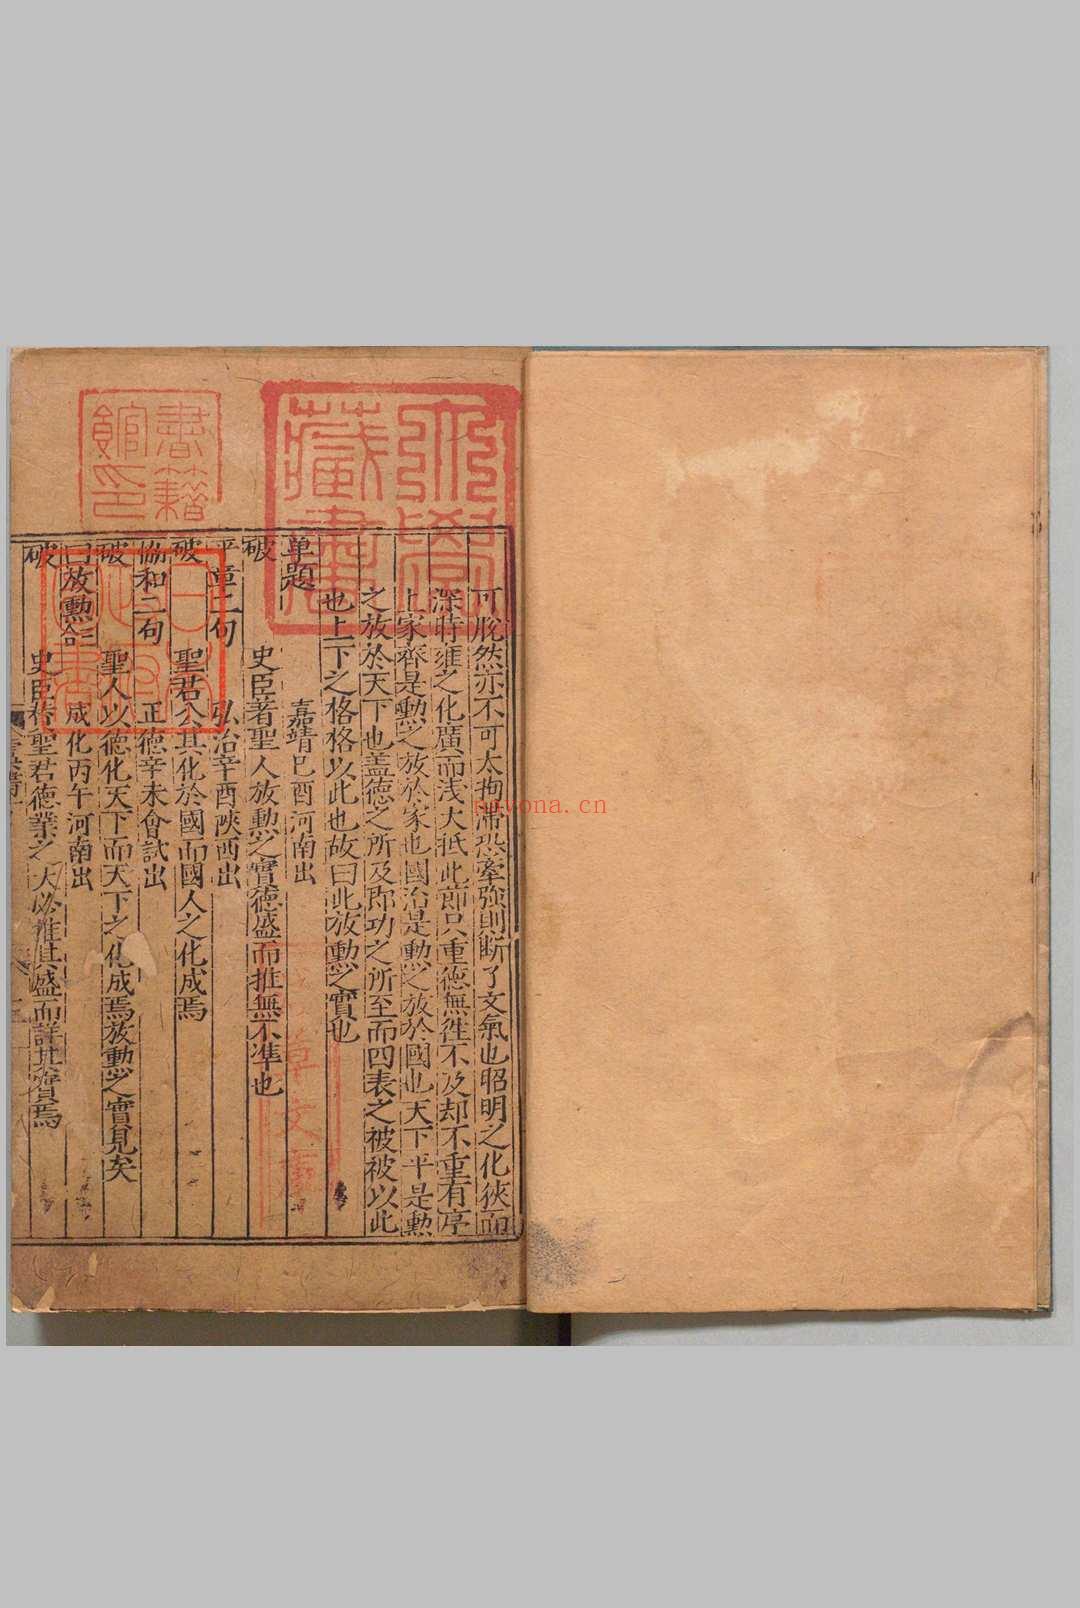 可脫然亦不可太拘滯恐牽強則斷了文氣也昭明之化狹而
深時雍之化廣而浅大抵此節只重德無徃不及却不重有序
上家齊是勲之放於家也國治是勲之放於國也天下平是勲
之放於天下也盖德之所及即功之所至而四表之被被以此
也上下之格格以此也故曰此放勲之實也
单題 嘉靖己酉河南出
破 史臣著聖人放勲之實德盛而推無不準也
平章二句 弘治辛酉陝西出
破 聖君公其化於國而國人之化成焉
協和二句 正德辛未會試出
破 聖人以德化天下而天下之化成焉放勲之實見矣
曰放勲合三 成化丙午河南出
破 史臣贊聖君德業之大必推其盛而詳其實焉
藏書
書籍館印
nayona.cn